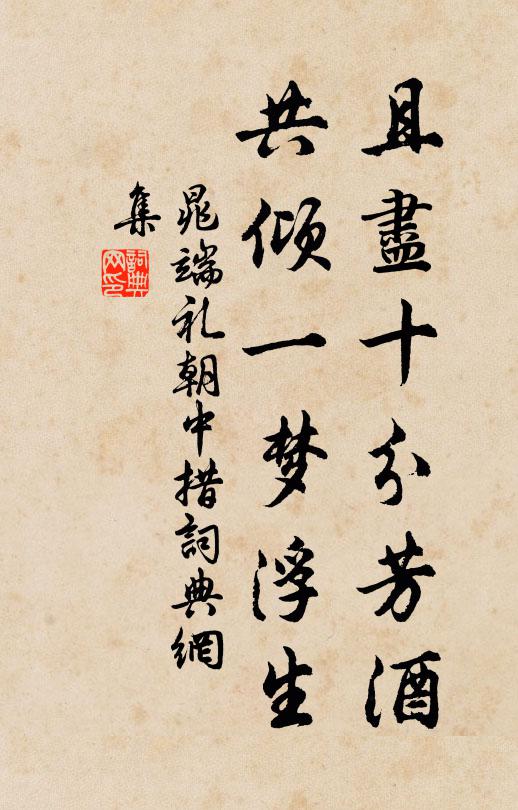 且盡十分芳酒
共傾一梦浮生
晁端礼朝中措詞典網
集
詞典网印